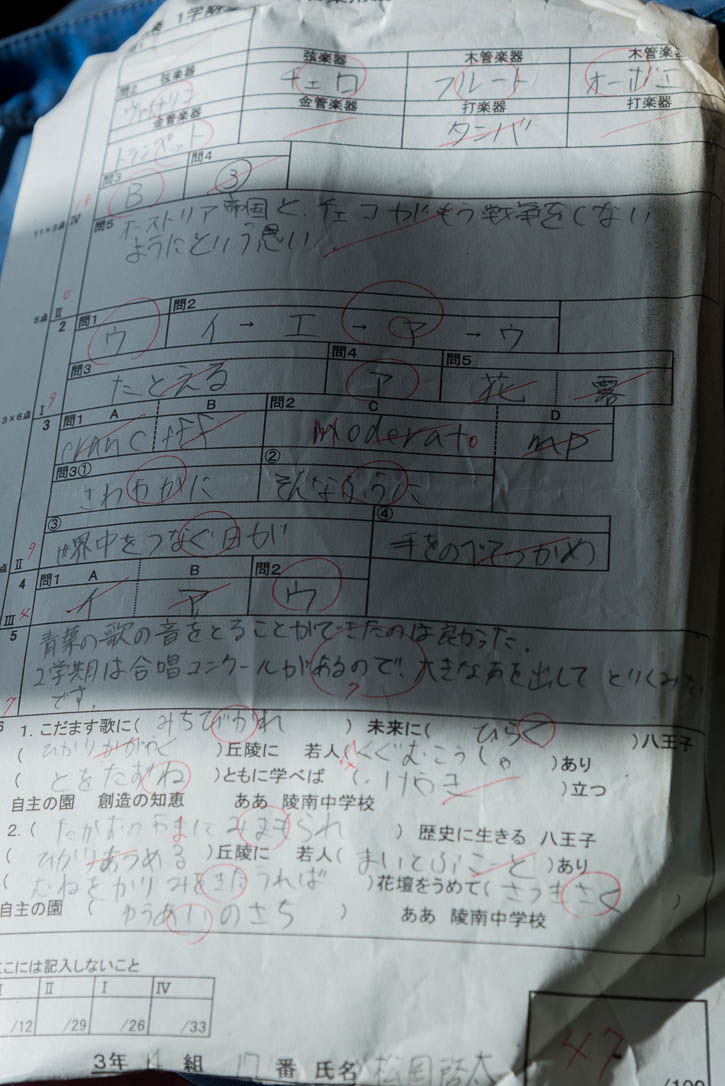 1学期
弦楽器 木管楽器 木管楽器
問2 弦楽器 チェロ フルート オーボエ
金管楽器 金管楽器 打楽器 打楽器
トランペット タンバ
問3 問4
B ③
11×3点 Ⅳ 18
問5 オーストリア帝国と、チェコがもう戦争をしない
ようにという思い
0
5点 Ⅱ
2 問1 問2
ウ イ → エ → ア → ウ
問3 問4 問5
たとえる ア 花 露
3×6点 Ⅰ 9
3 問1 A B 問2 C D
fff moderato mp
問3① ②
さわやかに そんなふうに
③ ④
世界中をつなぐ日が 手をのべてつかめ
点 Ⅱ 9
4 問1 A B 問2
イ ア ウ
Ⅲ 4
5 青葉の歌の音をとることができたのは良かった。
2学期は合唱コンクールがあるので、大きな声を出してとりくみたい
です。
7 7
6 1. こだます歌に( みちびかれ ) 未来に( ひらく )八王子
( ひかりかがやく )丘陵に 若人( )あり
( とをたずね )ともに学べば ( けやき )立つ
自主の園 創造の知恵 ああ 陵南中学校
2. ( みまもられ ) 歴史に生きる 八王子
( ひかりあつめる )丘陵に 若人( )あり
( )花壇をうめて( さつきさく )
自主の園 ( ゆうあいのさち ) ああ 陵南中学校
ここには記入しないこと
Ⅰ Ⅱ Ⅰ Ⅳ
/12 /29 /26 /33
47
3年 組 17番 氏名 松岡啓太
/100